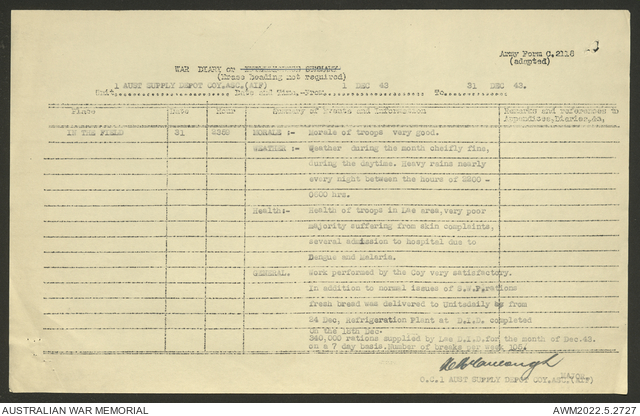 Army Form C.2118
(adapted)
WAR DIARY or INTELLIGENCE SUMMARY
(Erase heading not required)
Unit 1 AUST SUPPLY DEPOT COY.ASC.(AIF) Date and Time.-From 1 DEC 43 To 31 DEC 43.
Place Date Hour Summary of Events and Information Remarks and references to
Appendices, Diaries, &c,
IN THE FIELD 31 2359 MORALE :- Morale of troops very good.
WEATHER :- Weather during the month cheifly fine,
during the daytime. Heavy rains nearly
every night between the hours of 2200 -
0600 hrs.
Health:- Health of troops in Lae area, very poor
majority suffering from skin complaints,
several admission to hospital due to
Dengue and Malaria.
GENERAL. Work performed by the Coy very satisfactory.
In addition to normal issues of S.W.P. rations
fresh bread was delivered to Units daily from
24 Dec. Refrigeration Plant at D.I.D. completed
on the 15th Dec.
340,000 rations supplied by Lae D.I.D. for the month of Dec.43.
on a 7 day basis. Number of breaks per week 105.
Major
O.C. 1 AUST SUPPLY DEPOT COY.ASC.(AIF)
AUSTRALIAN WAR MEMORIAL
AWM2022.5.2727